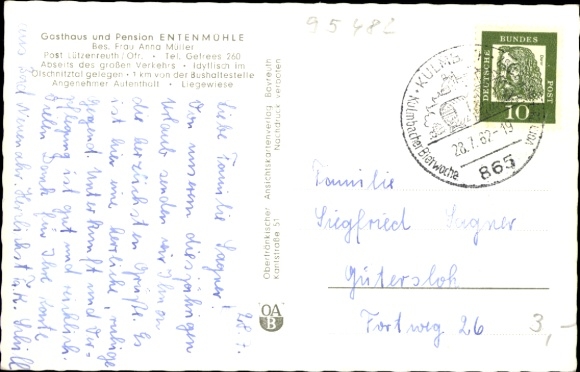 95482
Gasthaus und Pension ENTENMÜHLE
Bes. Frau Anna Müller
Post Lützenreuth/Ofr. • Tel. Gefrees 260
Abseits des großen Verkehrs • Idyllisch im
Ölschnitztal gelegen • 1 km von der Bushaltestelle
Angenehmer Aufenthalt • Liegewiese
28.7.
Liebe Familie Sagner!
Von unserem diesjährigen
Urlaub senden wir Ihnen
die herzlichsten Grüße. Es
ist hier eine herrliche, ruhige
Gegend. Unterkunft und Ver-
pflegung ist gut und reichlich.
Vielen Dank für Ihre Karte
aus Bad Neuenahr. Herzlichst
Oberfränkischer Ansichtskartenverlag Bayreuth
Kantstraße 51 Nachdruck verboten
OA
B
KULMB
Kulmbacher Bierwoche
28.7.62-19
865
DEUTSCHE
BUNDES
POST
10
Familie
Siegfried Sagner
Gütersloh
Fortweg 26
3,-